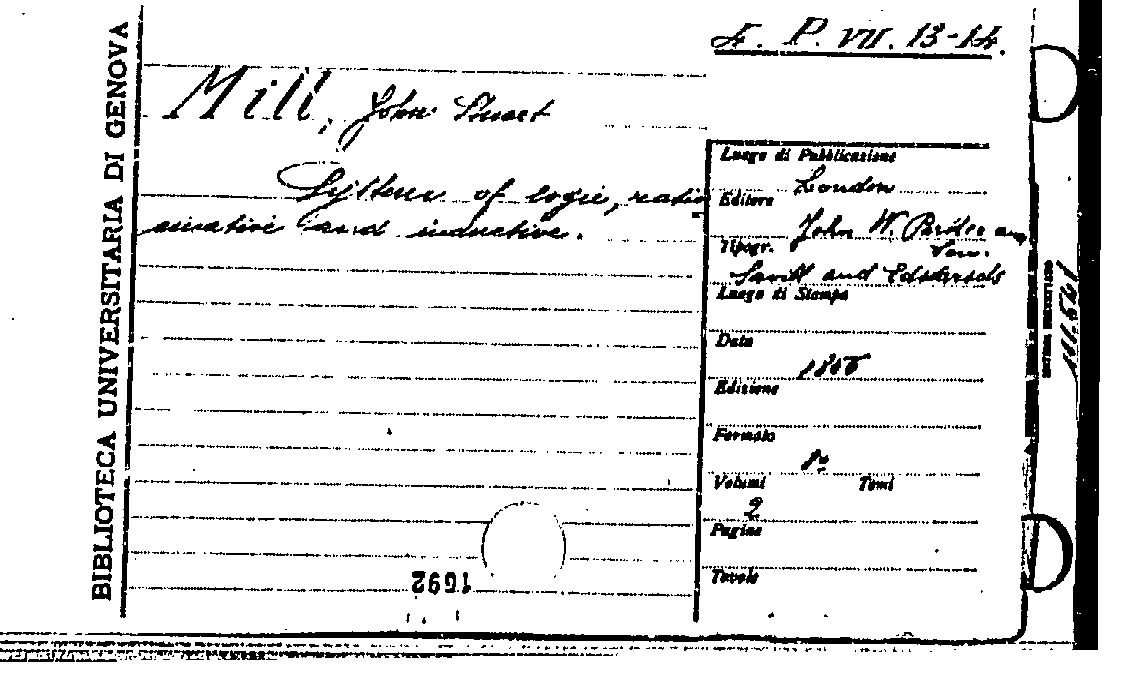 BIBLIOTECA UNIVERSITARIA DI GENOVA
F. P. VII. 13-14.
Mill, John Stuart
System of logic, ratio
cinative and inductive.
Luogo di Pubblicazione
London
Editore
John W. Parker and
Son.
Tipogr.
Savill and Edwards
Luogo di Stampa
Data
1856
Edizione
Formato
8°
Volumi Tomi
2
Pagine
Tavole
1692